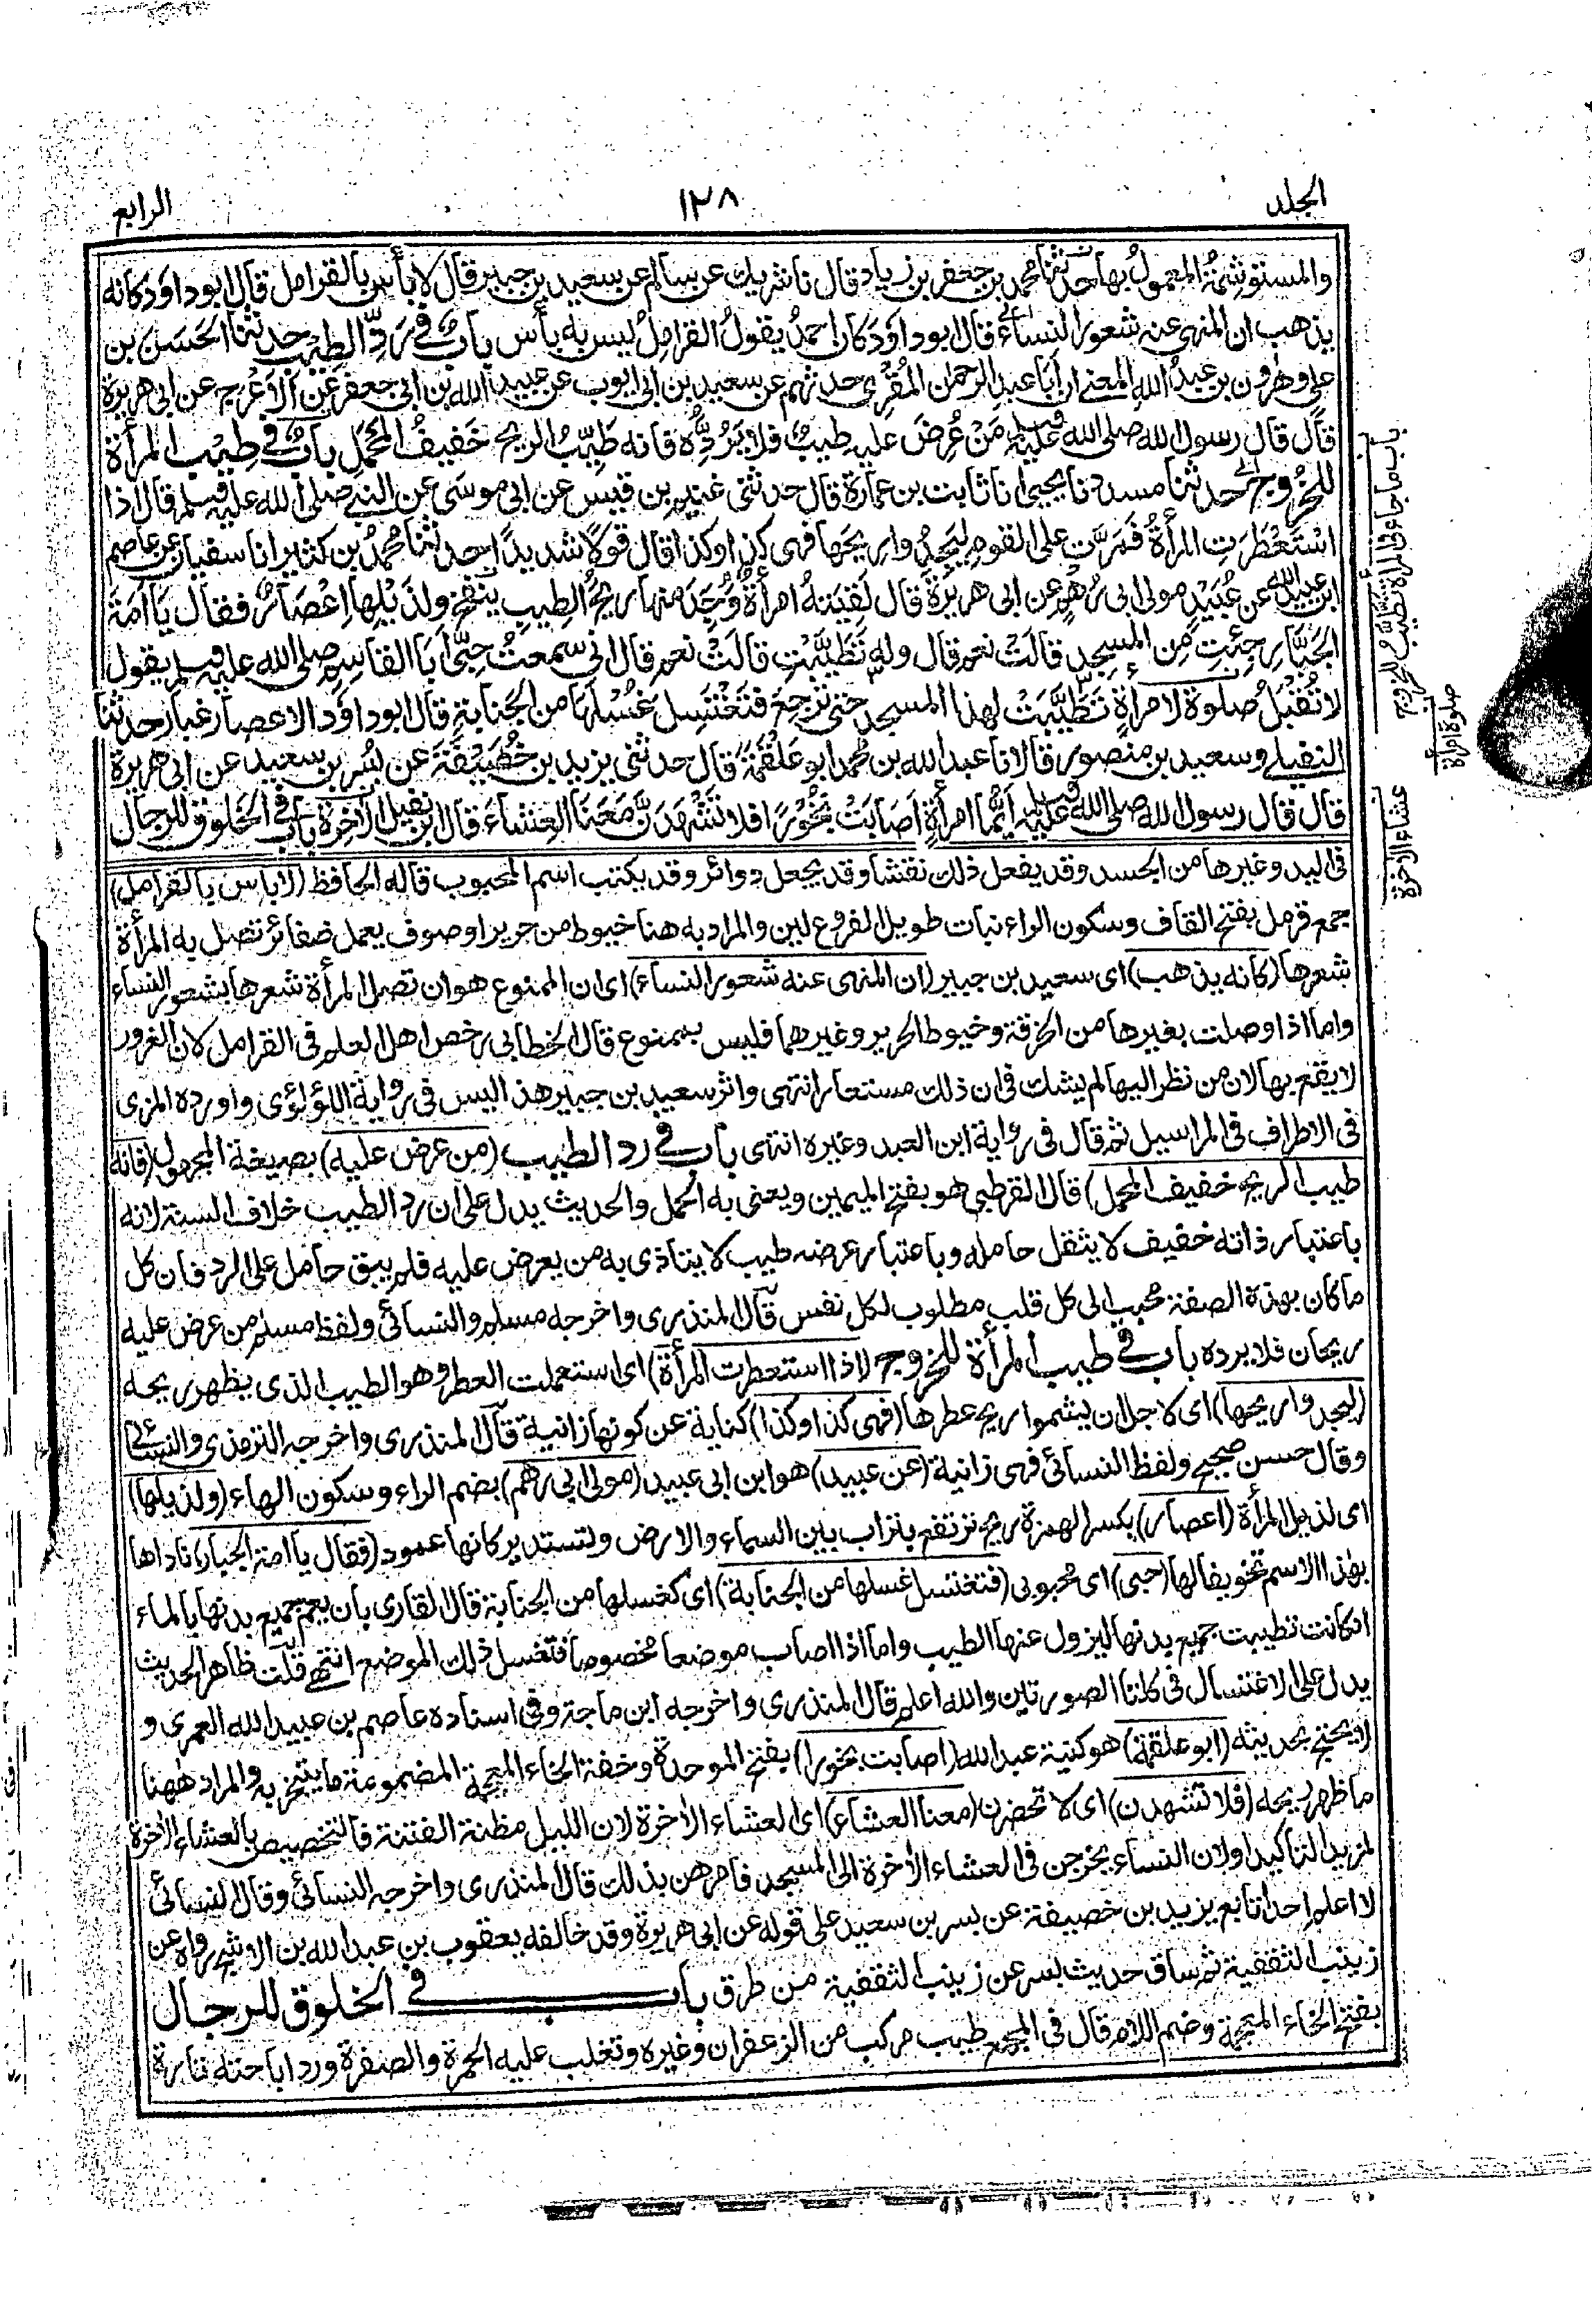 الجلد ١٢٨ الرابع
والمستوشمة المعمول بها حدثنا محمد بن جعفر بن زياد قال نا شريك عن سالم عن سعيد بن جبير قال لا بأس بالقرامل قال ابو داود كانه
يذهب ان المنهى عنه شعور النساء قال ابو داود كان احمد يقول القرامل ليس به بأس باب في رد الطيب حدثنا الحسن بن
على وهرون بن عبد الله المعنى ان ابا عبد الرحمن المقرئ حدثهم عن سعيد بن ابى ايوب عن عبيد الله بن ابى جعفر عن الاعرج عن ابى هريرة
قال قال رسول الله صلى الله عليه وسلم من عرض عليه طيب فلا يرده فانه طيب الريح خفيف المحمل باب في طيب المرأة
للخروج حدثنا مسدد نا يحيى انا ثابت بن عمارة قال حدثنى غنيم بن قيس عن ابى موسى عن النبى صلى الله عليه وسلم قال اذا
استعطرت المرأة فمرت على القوم ليجدوا ريحها فهى كذا وكذا قال قولا شديدا حدثنا محمد بن كثير انا سفيان عن عاصم
ابن عبيد الله عن عبيد مولى ابى رهم عن ابى هريرة قال لقيته امرأة وجد منها ريح الطيب ينفخ ولذيلها اعصار فقال يا امة
الجبار جئت من المسجد قالت نعم قال وله تطيبت قالت نعم قال انى سمعت حبى ابا القاسم صلى الله عليه وسلم يقول
لا تقبل صلوة لامرأة تطيبت لهذا المسجد حتى ترجع فتغتسل غسلها من الجنابة قال ابو داود الاعصار غبار حدثنا
النفيلى وسعيد بن منصور قالا نا عبد الله بن محمد ابو علقمة قال حدثنى يزيد بن خصيفة عن بسر بن سعيد عن ابى هريرة
قال قال رسول الله صلى الله عليه وسلم ايما امرأة اصابت بخورا فلا تشهدن معنا العشاء قال ابن نفيل الآخرة باب في الخلوق للرجال
فى اليد وغيرها من الجسد وقد يفعل ذلك نقشا وقد يجعل دوائر وقد يكتب اسم المحبوب قاله الحافظ (لا باس بالقرامل)
جمع قرمل بفتح القاف وسكون الراء نبات طويل الفروع لين والمراد به هنا خيوط من حرير او صوف يعمل ضفائر تصل به المرأة
شعرها (كانه يذهب) اى سعيد بن جبير (ان المنهى عنه شعور النساء) اى ان الممنوع هو ان تصل المرأة شعرها بشعور النساء
واما اذا وصلت بغيرها من الخرقة وخيوط الحرير وغيرهما فليس بممنوع قال الخطابى رخص اهل العلم فى القرامل لان الغرور
لا يقع بها لان من نظر اليها لم يشك فى ان ذلك مستعار انتهى واثر سعيد بن جبير هذا ليس فى رواية اللؤلؤى واورده المزى
فى الاطراف فى المراسيل ثم قال فى رواية ابن العبد وغيره انتهى باب في رد الطيب (من عرض عليه) بصيغة المجهول (فانه
طيب الريح خفيف المحمل) قال القرطبى هو بفتح الميمين ويعنى به الحمل والحديث يدل على ان رد الطيب خلاف السنة لانه
باعتبار ذاته خفيف لا يثقل حامله وباعتبار عرضه طيب لا يتاذى به من يعرض عليه فلم يبق حامل على الرد فان كل
ما كان بهذه الصفة محبب الى كل قلب مطلوب لكل نفس قال المنذرى واخرجه مسلم والنسائى ولفظ مسلم من عرض عليه
ريحان فلا يرده باب في طيب المرأة للخروج (اذا استعطرت المرأة) اى استعملت العطر وهو الطيب الذى يظهر ريحه
(ليجدوا ريحها) اى لاجل ان يشموا ريح عطرها (فهى كذا وكذا) كناية عن كونها زانية قال المنذرى واخرجه الترمذى والنسائى
وقال حسن صحيح ولفظ النسائى فهى زانية (عن عبيد) هو ابن ابى عبيد (مولى ابى رهم) بضم الراء وسكون الهاء (ولذيلها)
اى لذيل المرأة (اعصار) بكسر الهمزة ريح ترتفع بتراب بين السماء والارض وتستدير كانها عمود (فقال يا امة الجبار) ناداها
بهذا الاسم تخويفا لها (حبى) اى محبوبى (فتغتسل غسلها من الجنابة) اى كغسلها من الجنابة قال القارى بان يعم جميع بدنها بالماء
ان كانت تطيبت جميع بدنها ليزول عنها الطيب واما اذا اصاب موضعا مخصوصا فتغسل ذلك الموضع انتهى قلت ظاهر الحديث
يدل على الاغتسال فى كلتا الصورتين والله اعلم قال المنذرى واخرجه ابن ماجة وفى اسناده عاصم بن عبيد الله العمرى و
لا يحتج بحديثه (ابو علقمة) هو كنية عبد الله (اصابت بخورا) بفتح الموحدة وخفة الخاء المعجمة المضمومة ما يتبخر به والمراد ههنا
ما ظهر ريحه (فلا تشهدن) اى لا تحضرن (معنا العشاء) اى العشاء الآخرة لان الليل مظنة الفتنة فالتخصيص بالعشاء الآخرة
لمزيد التاكيد او لان النساء يخرجن فى العشاء الآخرة الى المسجد فامرهن بذلك قال المنذرى واخرجه النسائى وقال النسائى
لا اعلم احدا تابع يزيد بن خصيفة عن بسر بن سعيد على قوله عن ابى هريرة وقد خالفه يعقوب بن عبد الله بن الاشج رواه عن
زينب الثقفية ثم ساق حديث بسر عن زينب الثقفية من طرق باب في الخلوق للرجال
بفتح الخاء المعجمة وضم اللام قال فى المجمع طيب مركب من الزعفران وغيره وتغلب عليه الحمرة والصفرة ورد اباحته تارة
باب ما جاء فى المرأة تطيب للخروج
صلوة امرأة
عشاء الآخرة